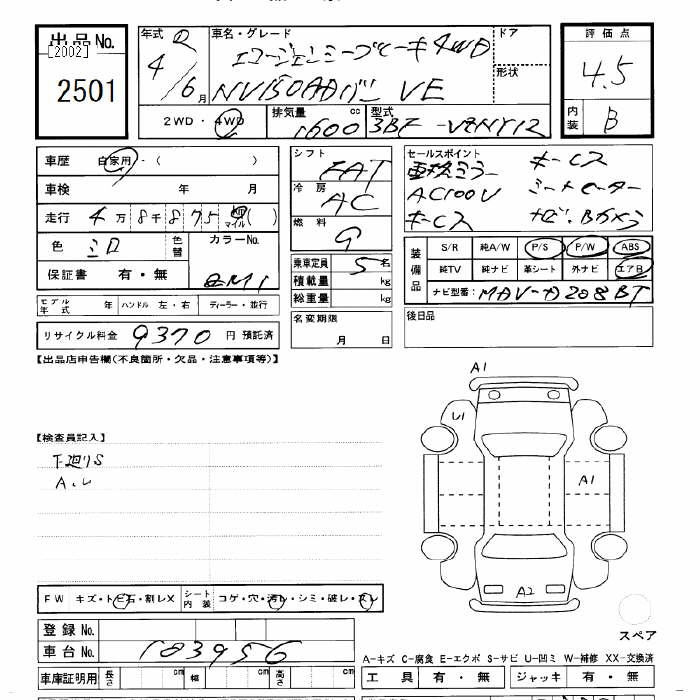 出品No.
[2002]
2501
年式 R 4/6月
車名・グレード
エマージェンシーブレーキ4WD
NV150ADバン VE
ドア
形状
評価点
4.5
内装 B
2WD・4WD
排気量 1600 cc
型式 3BF-VZNY12
車歴 自家用・( )
車検 年 月
走行 4万8千875 km マイル ( )
色 シロ 色替
カラーNo.
保証書 有・無
シフト FAT
冷房 AC
燃料 G
乗車定員 5名
積載量 kg
総重量 kg
セールスポイント
キーレス
AC100V ミートモーター
キーレス ナビ.Bカメラ
装備品
S/R 純A/W P/S P/W ABS
純TV 純ナビ 革シート 外ナビ エアB
ナビ型番:
モデル年式 年 ハンドル 左・右 ディーラー・並行
リサイクル料金 9370 円 預託済
名変期限 月 日
後日品
【出品店申告欄(不良箇所・欠品・注意事項等)】
【検査員記入】
下廻りS
A.レ
A1
U1
A1
A2
FW キズ・トビ石・割レX
シート内装 コゲ・穴・汚レ・シミ・破レ・スレ
スペア
登録No.
車台No. 183956
A-キズ C-腐食 E-エクボ S-サビ U-凹ミ W-補修 XX-交換済
車庫証明用 長さ cm 幅 cm 高さ cm
工具 有・無 ジャッキ 有・無